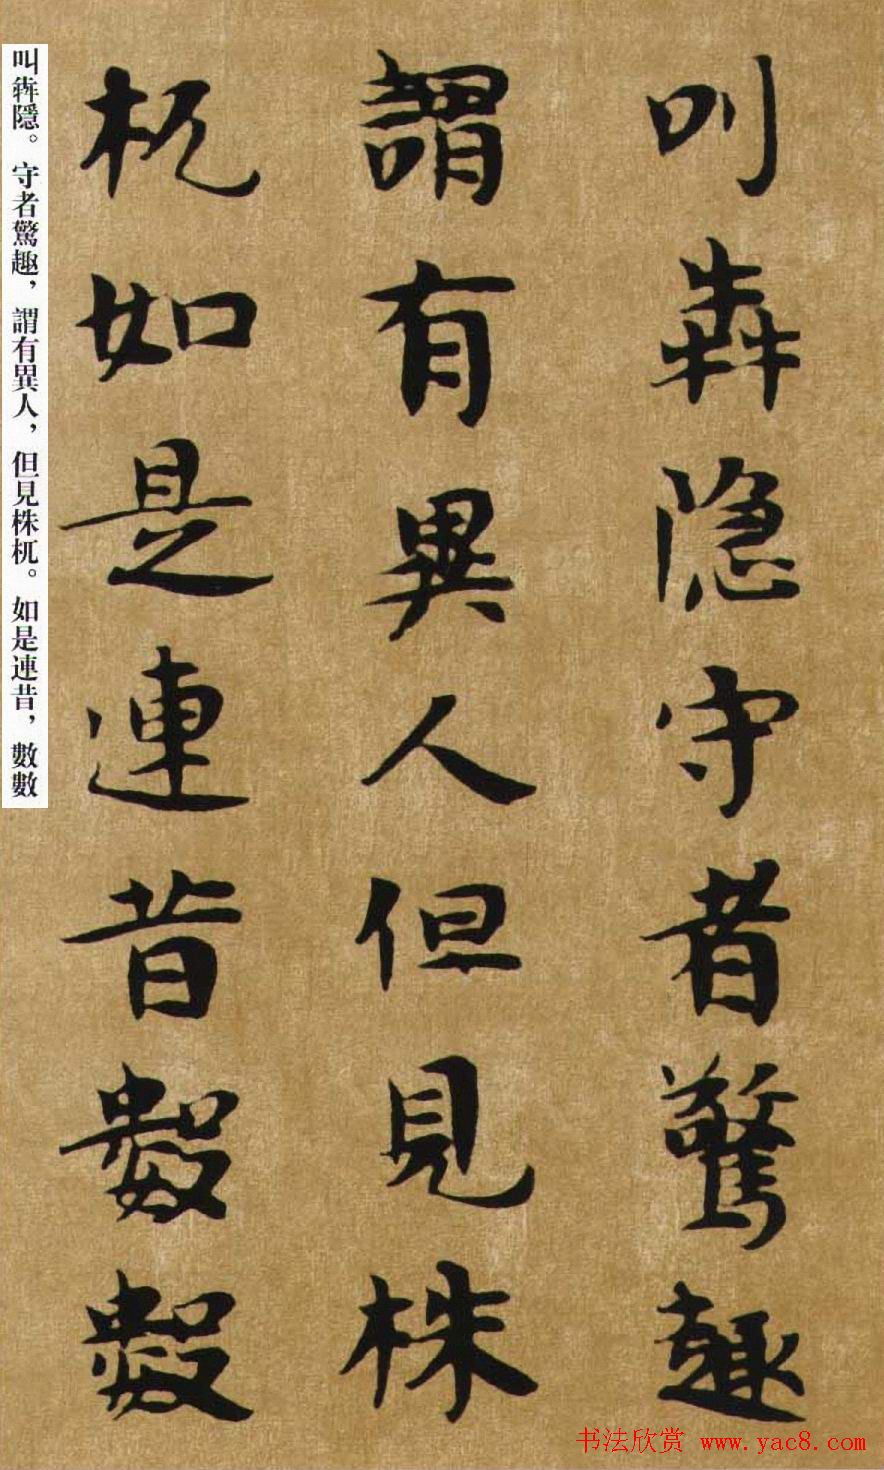 叫犇隐守者驚趣
謂有異人但見株
杌如是連昔數數
叫犇隱。守者驚趣，謂有異人，但見株杌。如是連昔，數數
书法欣赏 www.yac8.com